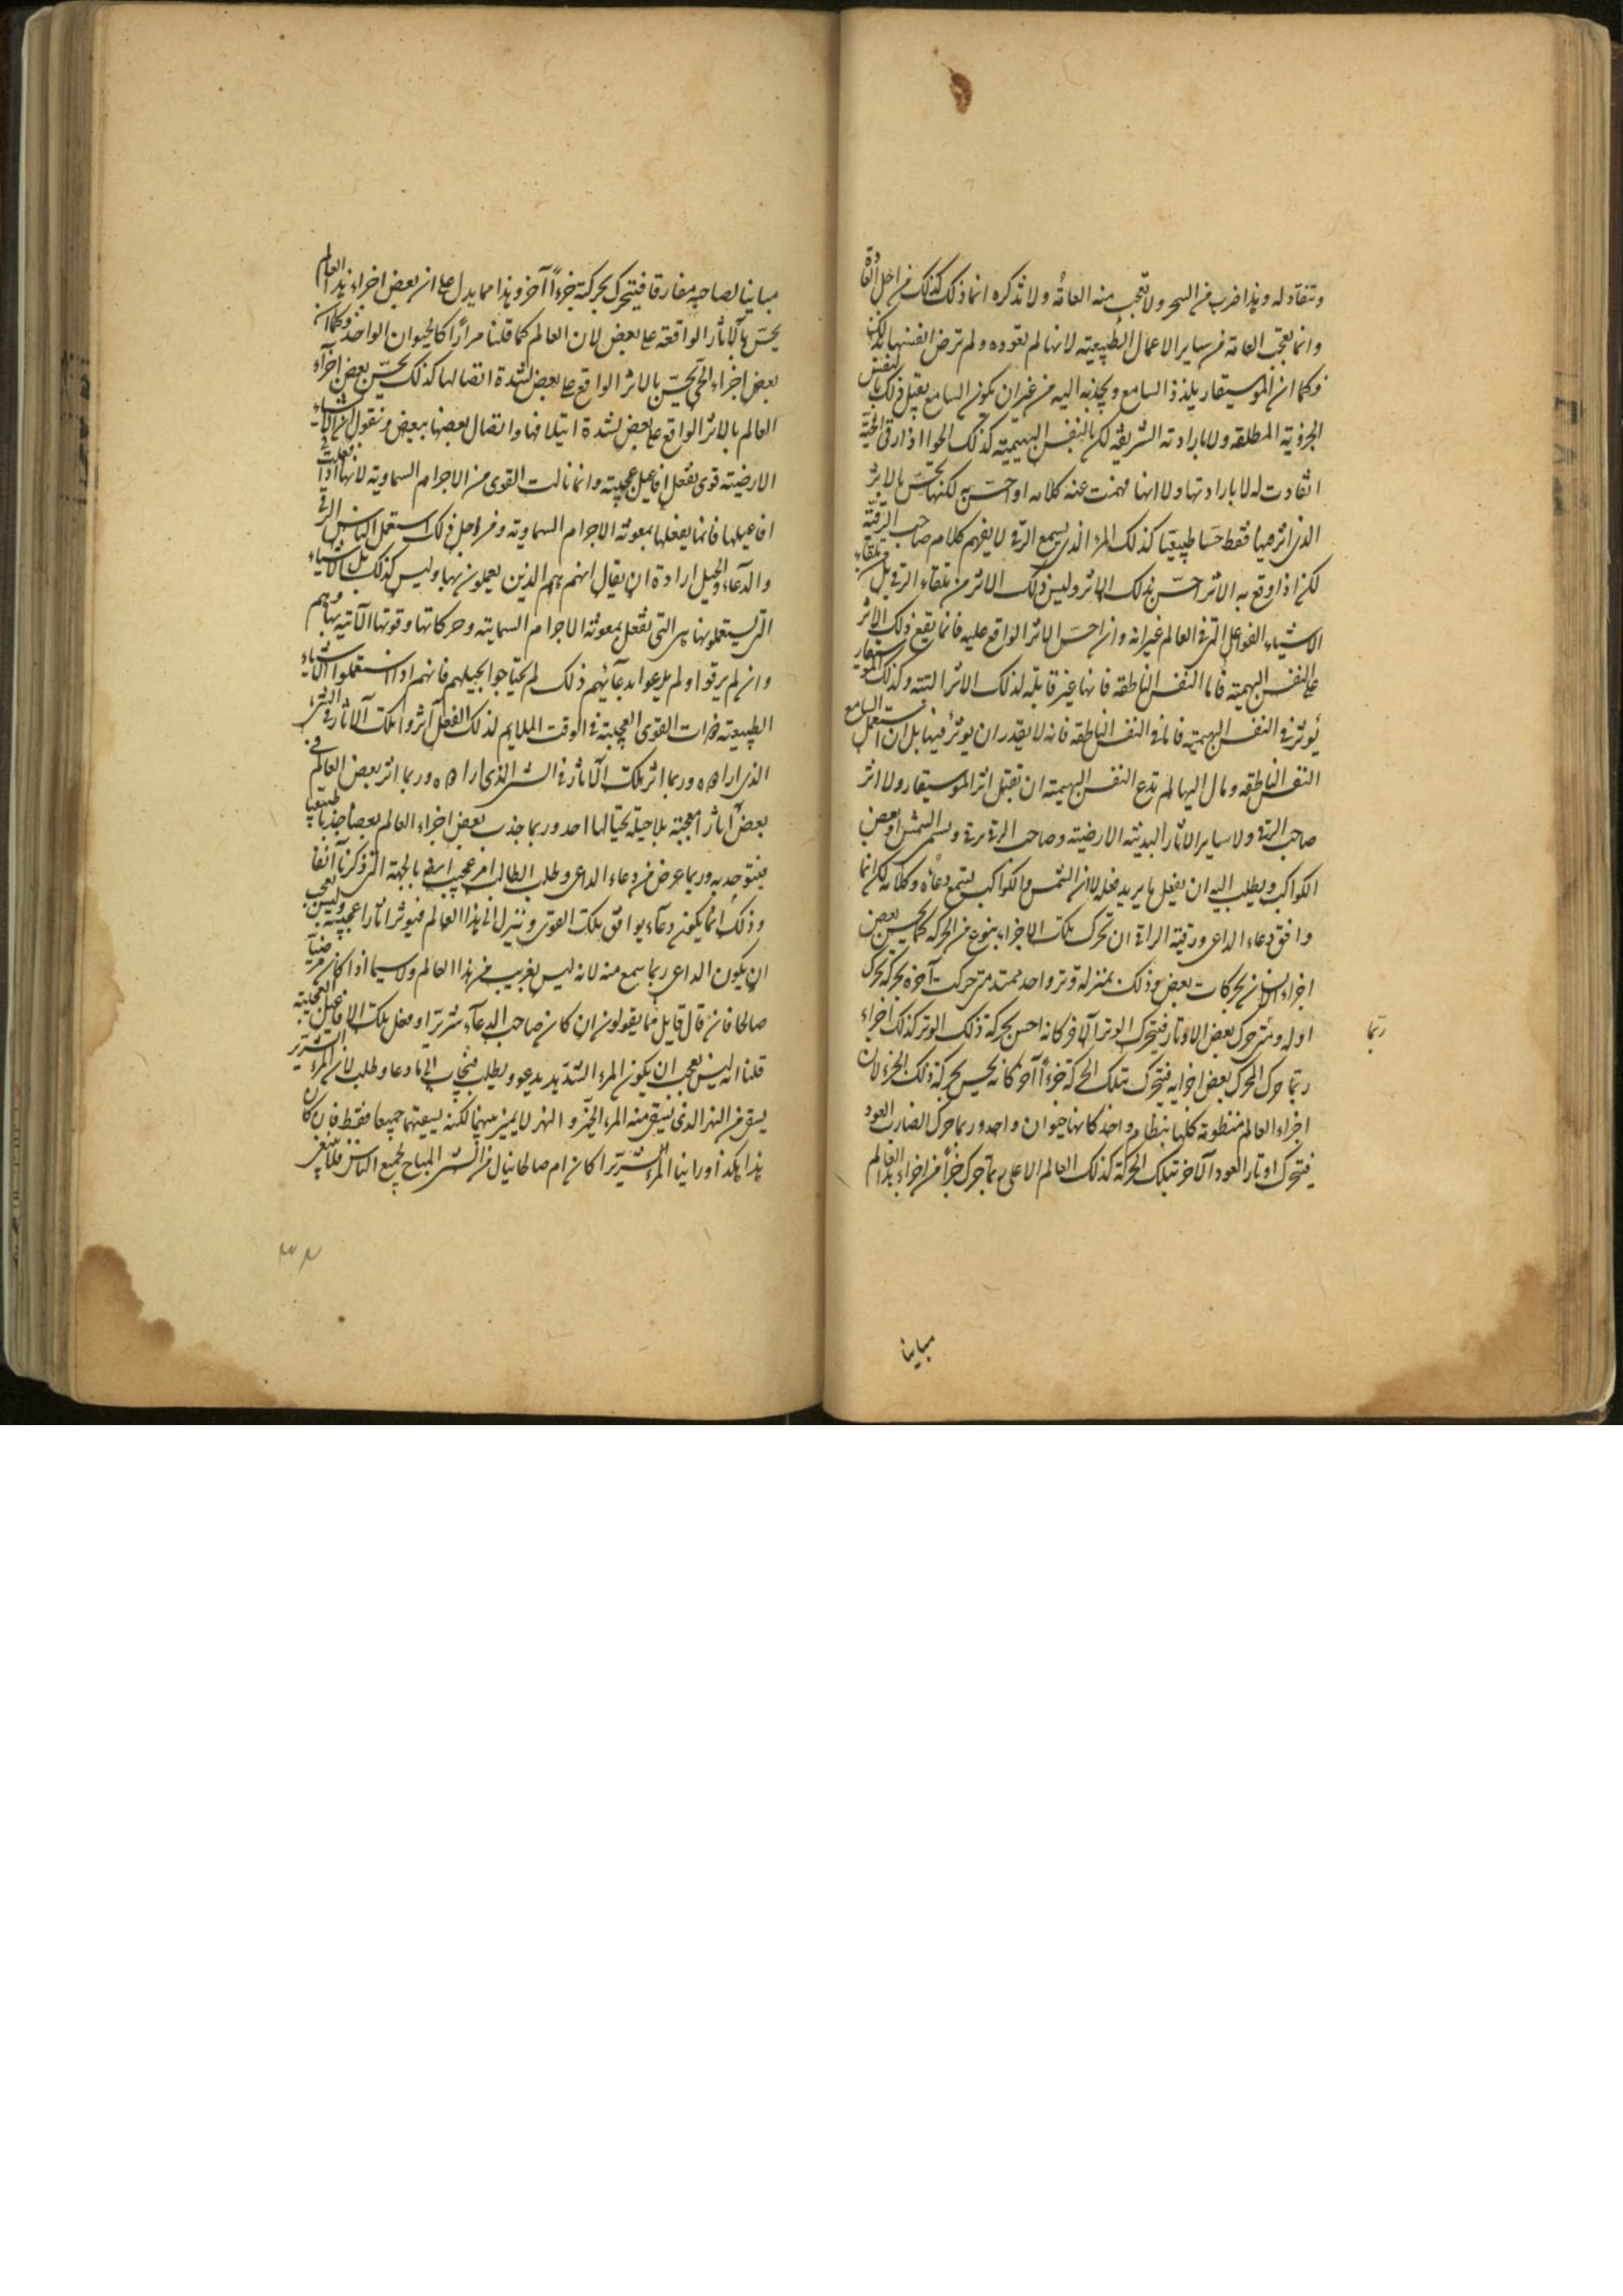 وتنقاد له وهذا ضرب من السحر ولا تعجب منه العامة ولا تنكره انما ذلك كذلك من اجل العادة
وانما تعجب العامة من ساير الاعمال الطبيعية لانها لم تعوده ولم ترض انفسها بذلك
فكما ان الموسيقار يلذذ السامع ويجذبه اليه من غير ان يكون السامع يقبل ذلك بالنفس
الجزئية المطلقة ولا بارادته الشريفة لكن بالنفس البهيمية كذلك الحواا اذا رقى الحية
انقادت له لا بارادتها ولا انها فهمت عنه كلامه او احست به لكنها تحس بالاثر
الذى اثر فيها فقط حسا طبيعيا كذلك المرء الذى يسمع الرقى لا يفهم كلام صاحب الرقية
لكن اذا وقع به الاثر احس بذلك الاثر وليس ذلك الاثر من تلقاء الرقى بل من تلقاء
الاشياء الفواعل التى فى العالم غير انه وان احس الاثر الواقع عليه فانما يقع ذلك الاثر
على النفس البهيمية فاما النفس الناطقة فانها غير قابلة لذلك الاثر البتة وكذلك الموسيقار
يؤثر فى النفس البهيمية فاما فى النفس الناطقة فانه لا يقدر ان يوثر فيها بل ان استعمل السامع
النفس الناطقة ومال اليها لم تدع النفس البهيمية ان تقبل اثر الموسيقار ولا اثر
صاحب الرقى ولا ساير الاثار البدنية الارضية وصاحب الرقى يرقى ويسمى الشمس او بعض
الكواكب ويطلب اليه ان يفعل ما يريد فعله لا ان الشمس والكواكب يستمع دعاءه وكلامه لكن انما
وافق دعاء الداعى ورقية الراقى ان تحرك تلك الاجزاء بنوع من الحركة كما يحس بعض
اجزاء الانسان بحركات بعض وذلك بمنزلة وتر واحد ممتد متى حركت آخره بحركة تحرك
اوله ومتى حرك بعض الاوتار فيتحرك الوتر الآخر كانه احس بحركة ذلك الوتر كذلك اجزاء
ربما
ربما حرك المحرك بعض اجزايه فيتحرك بتلك الحركة جزءاً آخر كانه يحس بحركة ذلك الجزء لان
اجزاء العالم منظومة كلها بنظام واحد كانها حيوان واحد وربما حرك الضارب العود
فيتحرك اوتار العود الآخر بتلك الحركة كذلك العالم الاعلى ربما حرك جزءاً من اجزاء هذا العالم
مباينا
مباينا لصاحبه مفارقا فيتحرك بحركة جزءاً آخر وهذا مما يدل على ان بعض اجزاء هذا العالم
يحس بالآثار الواقعة على بعض لان العالم كما قلنا مراراً كالحيوان الواحد وكما ان
بعض اجزاء الحى يحس بالاثر الواقع على بعض لشدة اتصالها كذلك يحس بعض اجزاء
العالم بالاثر الواقع على بعض لشدة ايتلافها واتصال بعضها ببعض ونقول ان الاشياء
الارضية قوى تفعل افاعيل عجيبة وانما نالت القوى من الاجرام السماوية لانها اذا فعلت
افاعيلها فانما يفعلها بمعونة الاجرام السماوية ومن اجل ذلك استعمل الناس الرقى
والدعاء والحيل ارادة ان يقال انهم هم الذين يعملون بها وليس كذلك بل الاشياء
التى يستعملونها هى التى تفعل بمعونة الاجرام السماية وحركاتها وقوتها الآتية بها وهم
وان لم يرقوا ولم يدعوا بدعآئهم ذلك لم يحتاجوا الى حيلهم فانهم اذا استعملوا الاشياء
الطبيعية ذات القوى العجيبة فى الوقت الملايم لذلك الفعل آثروا تلك الآثار فى الشئ
الذى ارادوه وربما اثر تلك الآثار فى الشئ الذى ارادوه وربما اثر بعض العالم فى
بعض آثارا معجبة بلا حيلة يحتالها احد وربما جذب بعض اجزاء العالم بعضا جذبا طبيعيا
فيتوحد به وربما عرض من دعاء الداعى وطلب الطالب امر عجيب ايضا بالجهة التى ذكرنا آنفا
وذلك انما يكون دعآء يوافق تلك القوى وينزل الى هذا العالم فيوثر اثارا عجيبة وليس بعجب
ان يكون الداعى ربما سمع منه لانه ليس بغريب فى هذا العالم ولا سيما اذا كان مرضيا
صالحا فان قال قايل فما يقولون ان كان صاحب الدعآء شريرا وفعل تلك الافاعيل العجيبة
قلنا انه ليس بعجب ان يكون المرء الشرير يدعو ويطلب فيجاب الى ما دعا وطلب لان المرء الشرير
يستقى من النهر الذى يستقى منه المرء الخير والنهر لا يميز بينهما لكنه يسقيهما جميعا فقط فان كان
هذا هكذا وراينا المرء الشرير كان ام صالحا ينال من الشئ المباح لجميع الناس فلا ينبغى